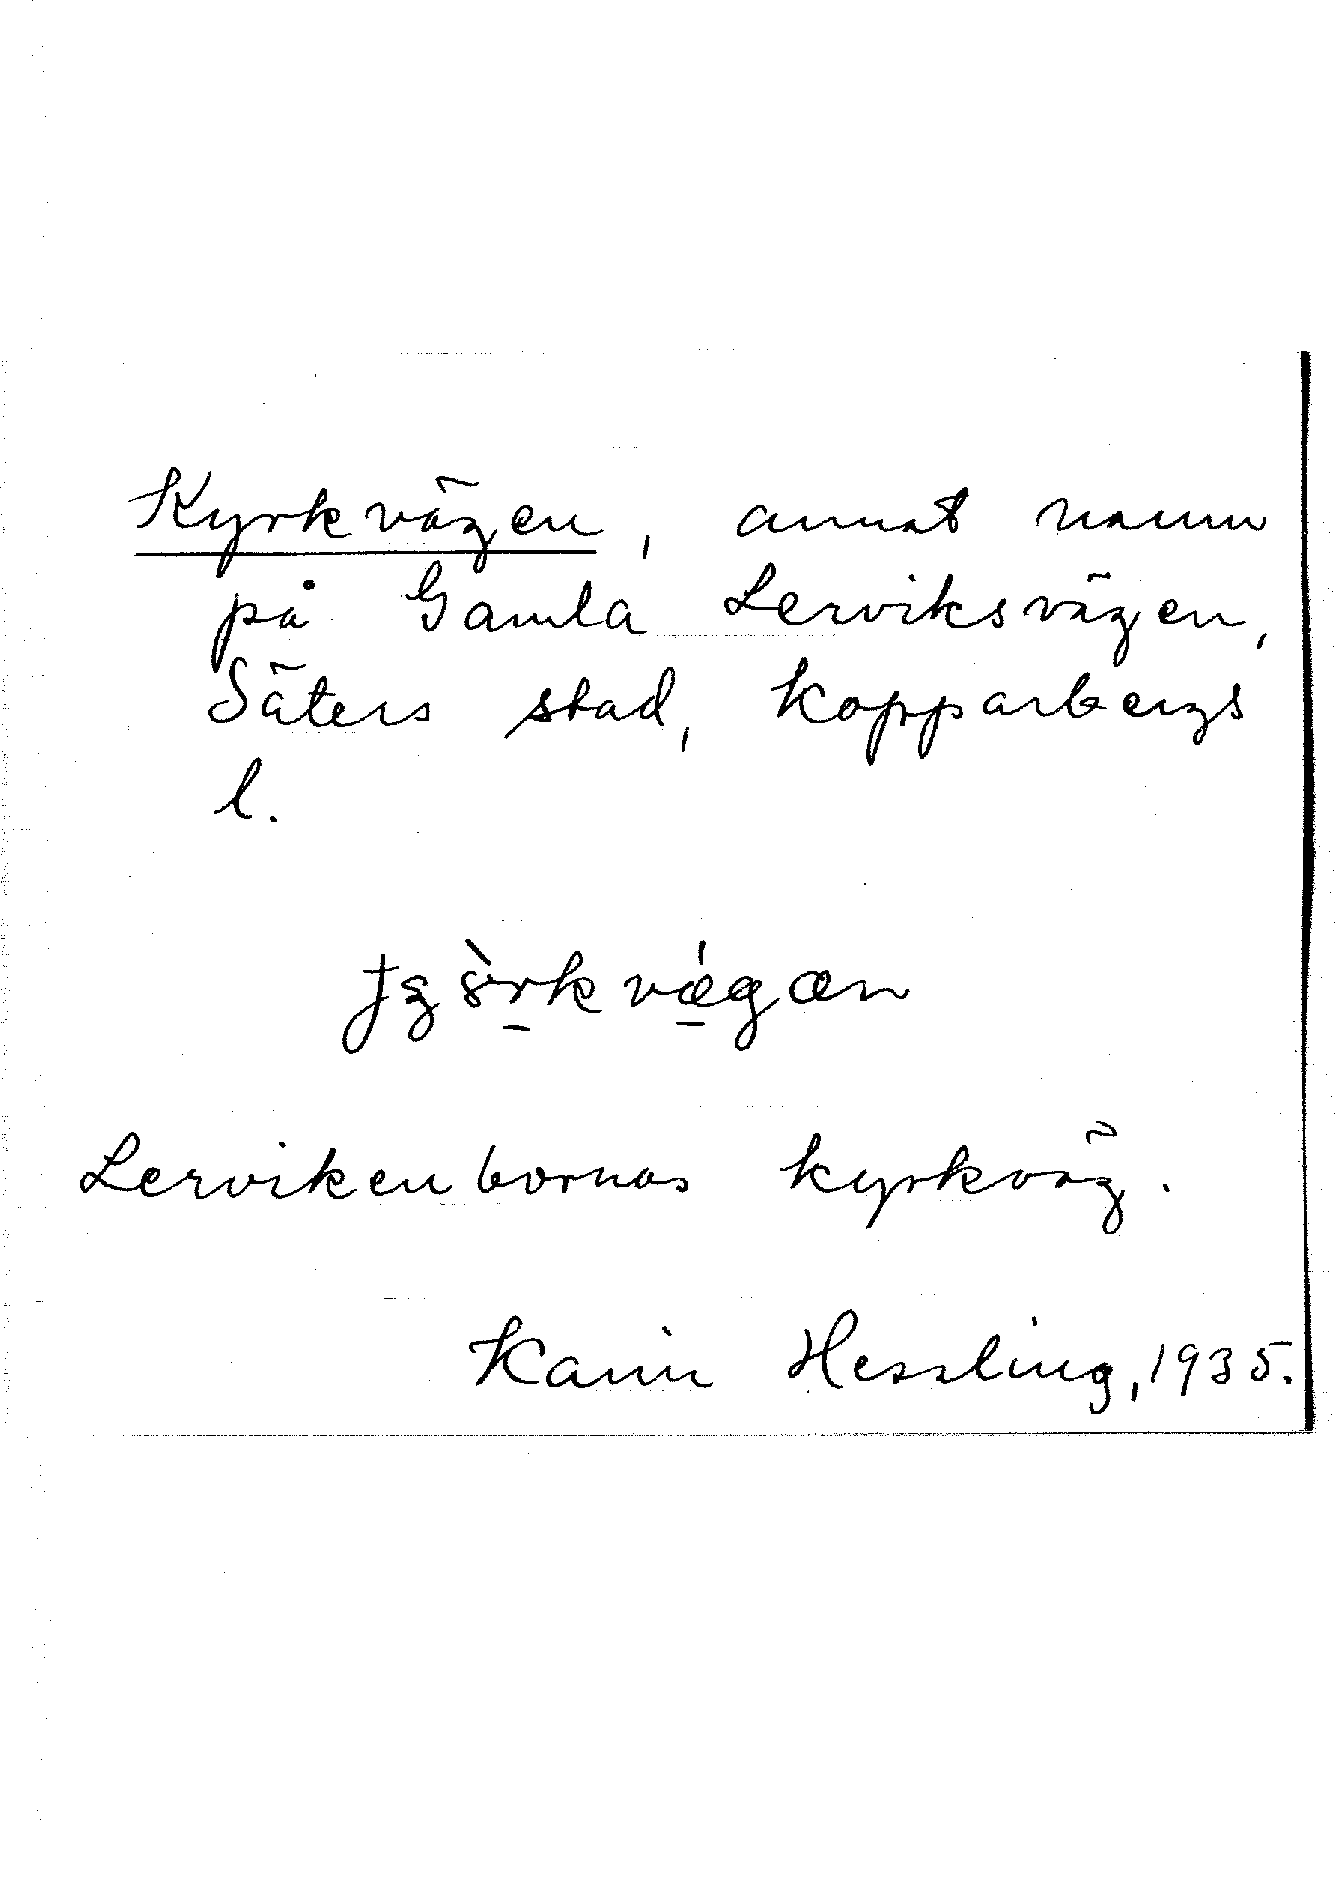 Kyrkvägen, annat namn
på Gamla Lerviksvägen,
Säters stad, Kopparbergs
l.
Lervikenbornas kyrkväg.
Karin Hessling, 1935.